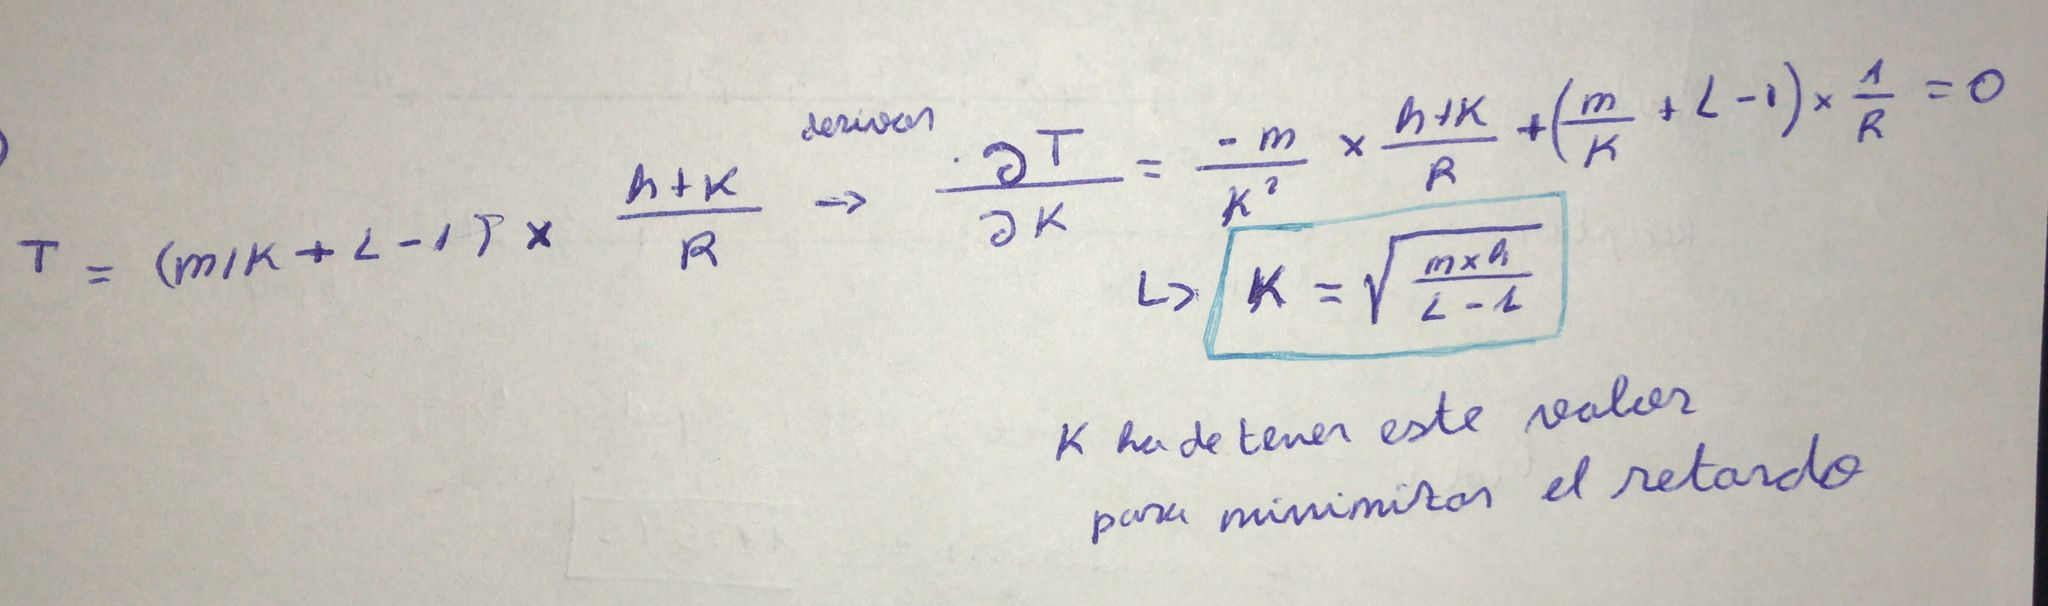 T = (m/K + L - 1) × (h+K)/R → derivar ∂T/∂K = -m/K² × (h+K)/R + (m/K + L - 1) × 1/R = 0
↳ K = √((m×h)/(L-1))
K ha de tener este valor
para minimizar el retardo